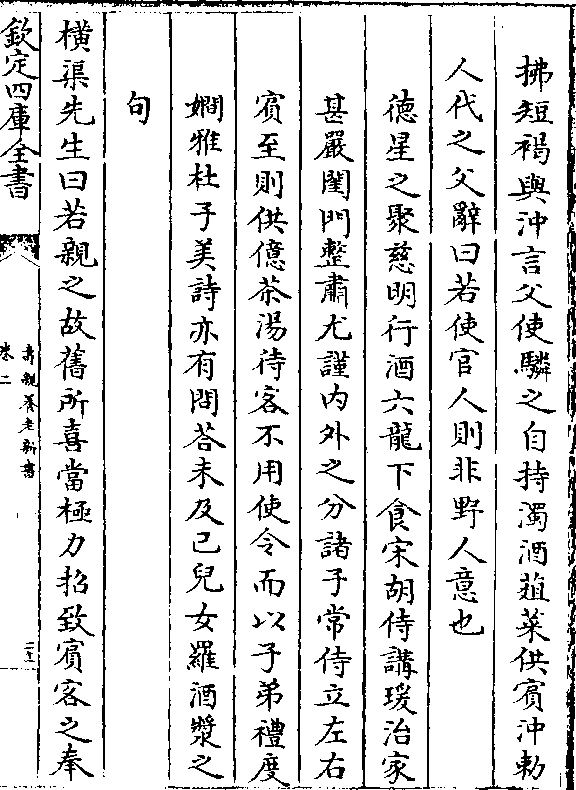 拂短褐與沖言父使驎之自持濁酒葅菜供賓沖勅
人代之父辭曰若使官人則非野人意也
德星之聚慈明行酒六龍下食宋胡侍講瑗治家
甚嚴閨門整肅尤謹内外之分諸子常侍立左右
賓至則供億茶湯待客不用使令而以子弟禮度
嫺雅杜子美詩亦有問荅未及已兒女羅酒漿之
句
橫渠先生曰若親之故舊所喜當極力招致賓客之奉
欽定四庫全書
壽親養老新書
卷二
二五